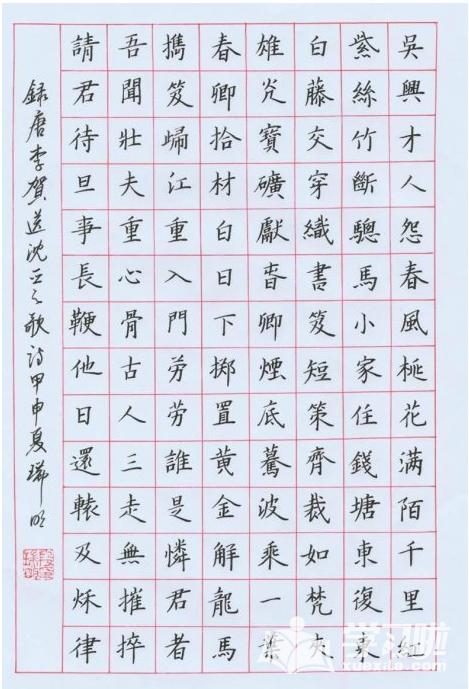 吳興才人怨春風桃花滿陌千里紅
紫絲竹斷驄馬小家住錢塘東復東
白藤交穿織書笈短策齊裁如梵夾
雄光寶礦獻春卿煙底驀波乘一葉
春卿拾材白日下擲置黄金解龍馬
攜笈歸江重入門劳勞誰是憐君者
吾聞壯夫重心骨古人三走無摧捽
請君待旦事長鞭他日還轅及秋律
録唐李賀送沈亞之歌詩甲申夏瑞明
学习啦
xuexila.com